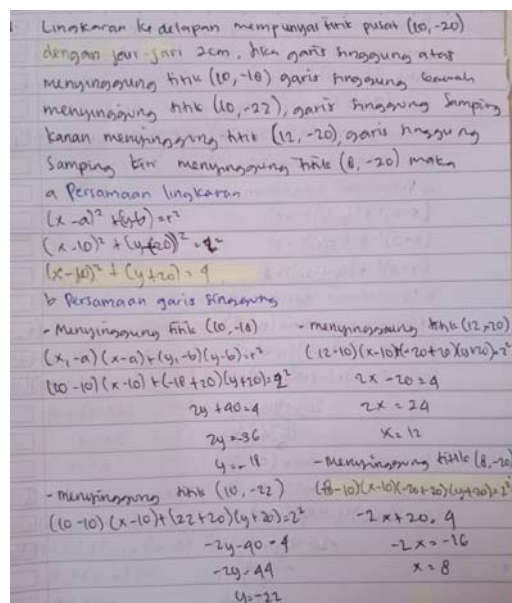 Lingkaran ke delapan mempunyai titik pusat (10, -20)
dengan jari-jari 2cm. Jika garis singgung atas
menyinggung titik (10, -18) garis singgung bawah
menyinggung titik (10, -22), garis singgung samping
kanan menyinggung titik (12, -20), garis singgung
samping kiri menyinggung titik (8, -20) maka
a Persamaan lingkaran
(x-a)² + (y-b)² = r²
(x-10)² + (y-(-20))² = 2²
(x-10)² + (y+20) = 4
b Persamaan garis singgung
- Menyinggung titik (10, -18)
(x₁-a)(x-a)+(y₁-b)(y-b)=r²
(10-10)(x-10)+(-18+20)(y+20)=2²
2y+40=4
2y=-36
y=-18
- menyinggung titik (10, -22)
(10-10)(x-10)+(22+20)(y+20)=2²
-2y-40=4
-2y=44
y=-22
- menyinggung titik (12,-20)
(12-10)(x-10)(-20+20)(y+20)=2²
2x-20=4
2x=24
x=12
- Menyinggung titik (8,-20)
(8-10)(x-10)(-20+20)(y+20)=2²
-2x+20=4
-2x=-16
x=8